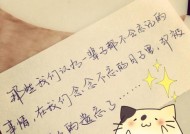 那些我们以为一辈子都不会忘记的
事情，在我们念念不忘的日子里，却被
的遗忘了……